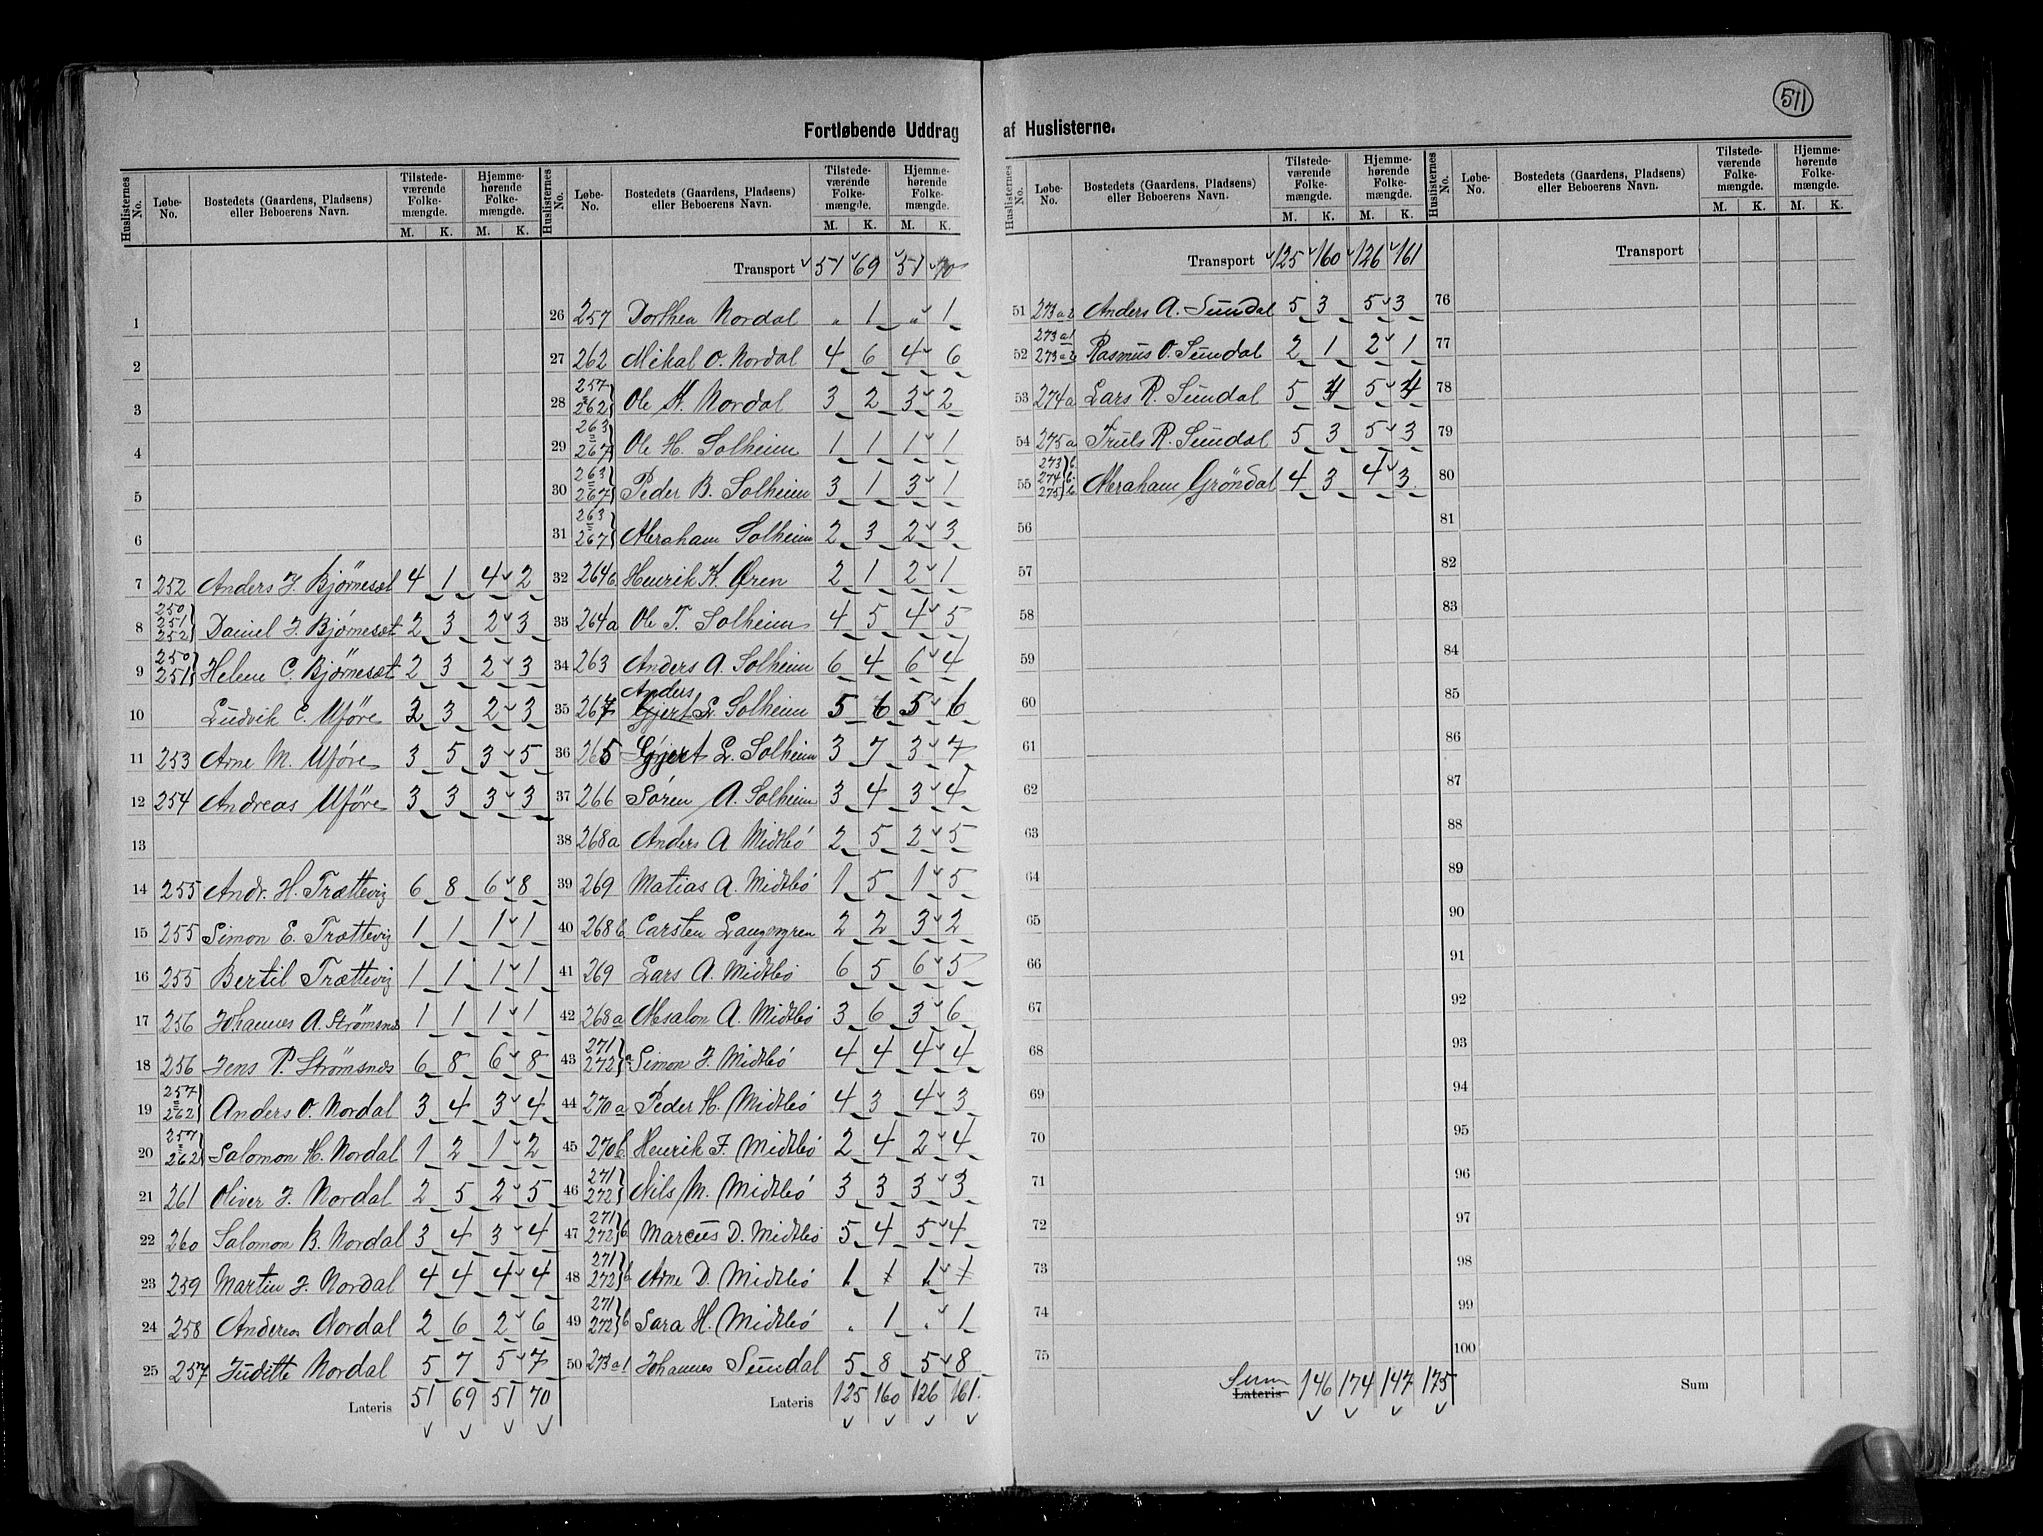 511
Fortløbende Uddrag af Huslisterne.
Huslisternes No. Løbe-No. Bostedets (Gaardens, Pladsens) eller Beboerens Navn. Tilstedeværende Folkemængde. M. K. Hjemmehørende Folkemængde. M. K.
1
2
3
4
5
6
7 252 Anders J. Bjørneset 4 1 4 2
8 250 251 252 Daniel J. Bjørneset 2 3 2 3
9 250 251 Helene C. Bjørneset 2 3 2 3
10 Ludvik C. Uføre 2 3 2 3
11 253 Arne M. Uføre 3 5 3 5
12 254 Andreas Uføre 3 3 3 3
13
14 255 Andr. H. Trættevig 6 8 6 8
15 255 Simon E. Trættevig 1 1 1 1
16 255 Bertil Trættevig 1 1 1 1
17 256 Johannes A. Strømsnes 1 1 1 1
18 256 Jens P. Strømsnes 6 8 6 8
19 257 = 262 Anders O. Nordal 3 4 3 4
20 257 = 262 Salomon H. Nordal 1 2 1 2
21 261 Oliver J. Nordal 2 5 2 5
22 260 Salomon B. Nordal 3 4 3 4
23 259 Martin J. Nordal 4 4 4 4
24 258 Anderea Nordal 2 6 2 6
25 257 Juditte Nordal 5 7 5 7
Lateris 51 69 51 70
Huslisternes No. Løbe-No. Bostedets (Gaardens, Pladsens) eller Beboerens Navn. Tilstedeværende Folkemængde. M. K. Hjemmehørende Folkemængde. M. K.
Transport 51 69 51 70
26 257 Dorthea Nordal " 1 " 1
27 262 Mikal O. Nordal 4 6 4 6
28 257 = 262 Ole M. Nordal 3 2 3 2
29 263 = 267 Ole H. Solheim 1 1 1 1
30 263 = 267 Peder B. Solheim 3 1 3 1
31 263 = 267 Abraham Solheim 2 3 2 3
32 264b Henrik K. Øren 2 1 2 1
33 264a Ole T. Solheim 4 5 4 5
34 263 Anders A. Solheim 6 4 6 4
Anders
35 267 Gjert L. Solheim 5 6 5 6
36 265 Gjert L. Solheim 3 7 3 7
37 266 Søren A. Solheim 3 4 3 4
38 268a Anders A Midtbó 2 5 2 5
39 269 Matias A. Midtbó 1 5 1 5
40 268b Carsten Langøgren 2 2 3 2
41 269 Lars A. Midtbó 6 5 6 5
42 268a Absalon A. Midtbó 3 6 3 6
43 271 272 a Simon J. Midtbó 4 4 4 4
44 270a Peder H. Midtbó 4 3 4 3
45 270b Henrik F. Midtbó 2 4 2 4
46 271 272 Nils M. Midtbó 3 3 3 3
47 271 272 b Marcus D. Midtbó 5 4 5 4
48 271 272 b Arne D. Midtbó 1 1 1 1
49 271 272 b Sara H. Midtbó " 1 " 1
50 273a1 Johannes Sundal 5 8 5 8
Lateris 125 160 126 161.
Huslisternes No. Løbe-No. Bostedets (Gaardens, Pladsens) eller Beboerens Navn. Tilstedeværende Folkemængde. M. K. Hjemmehørende Folkemængde. M. K.
Transport 125 160 126 161
51 273a2 Anders A. Sundal 5 3 5 3
52 273a1 273a2 Rasmus O. Sundal 2 1 2 1
53 274a Lars R. Sundal 5 4 5 4
54 275a Truls R. Sundal 5 3 5 3
55 273 b 274 b 275 b Abraham Grøndal 4 3 4 3
56
57
58
59
60
61
62
63
64
65
66
67
68
69
70
71
72
73
74
75
Sum
Lateris 146 174 147 175
Huslisternes No. Løbe-No. Bostedets (Gaardens, Pladsens) eller Beboerens Navn. Tilstedeværende Folkemængde. M. K. Hjemmehørende Folkemængde. M. K.
Transport
76
77
78
79
80
81
82
83
84
85
86
87
88
89
90
91
92
93
94
95
96
97
98
99
100
Sum